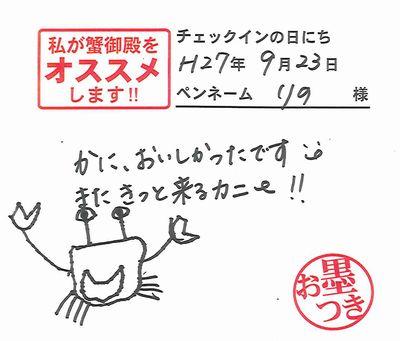 私が蟹御殿を
オススメ
します!!
チェックインの日にち
H27年 9月23日
ペンネーム リョ 様
かに、おいしかったです
またきっと来るカニー!!
お墨つき